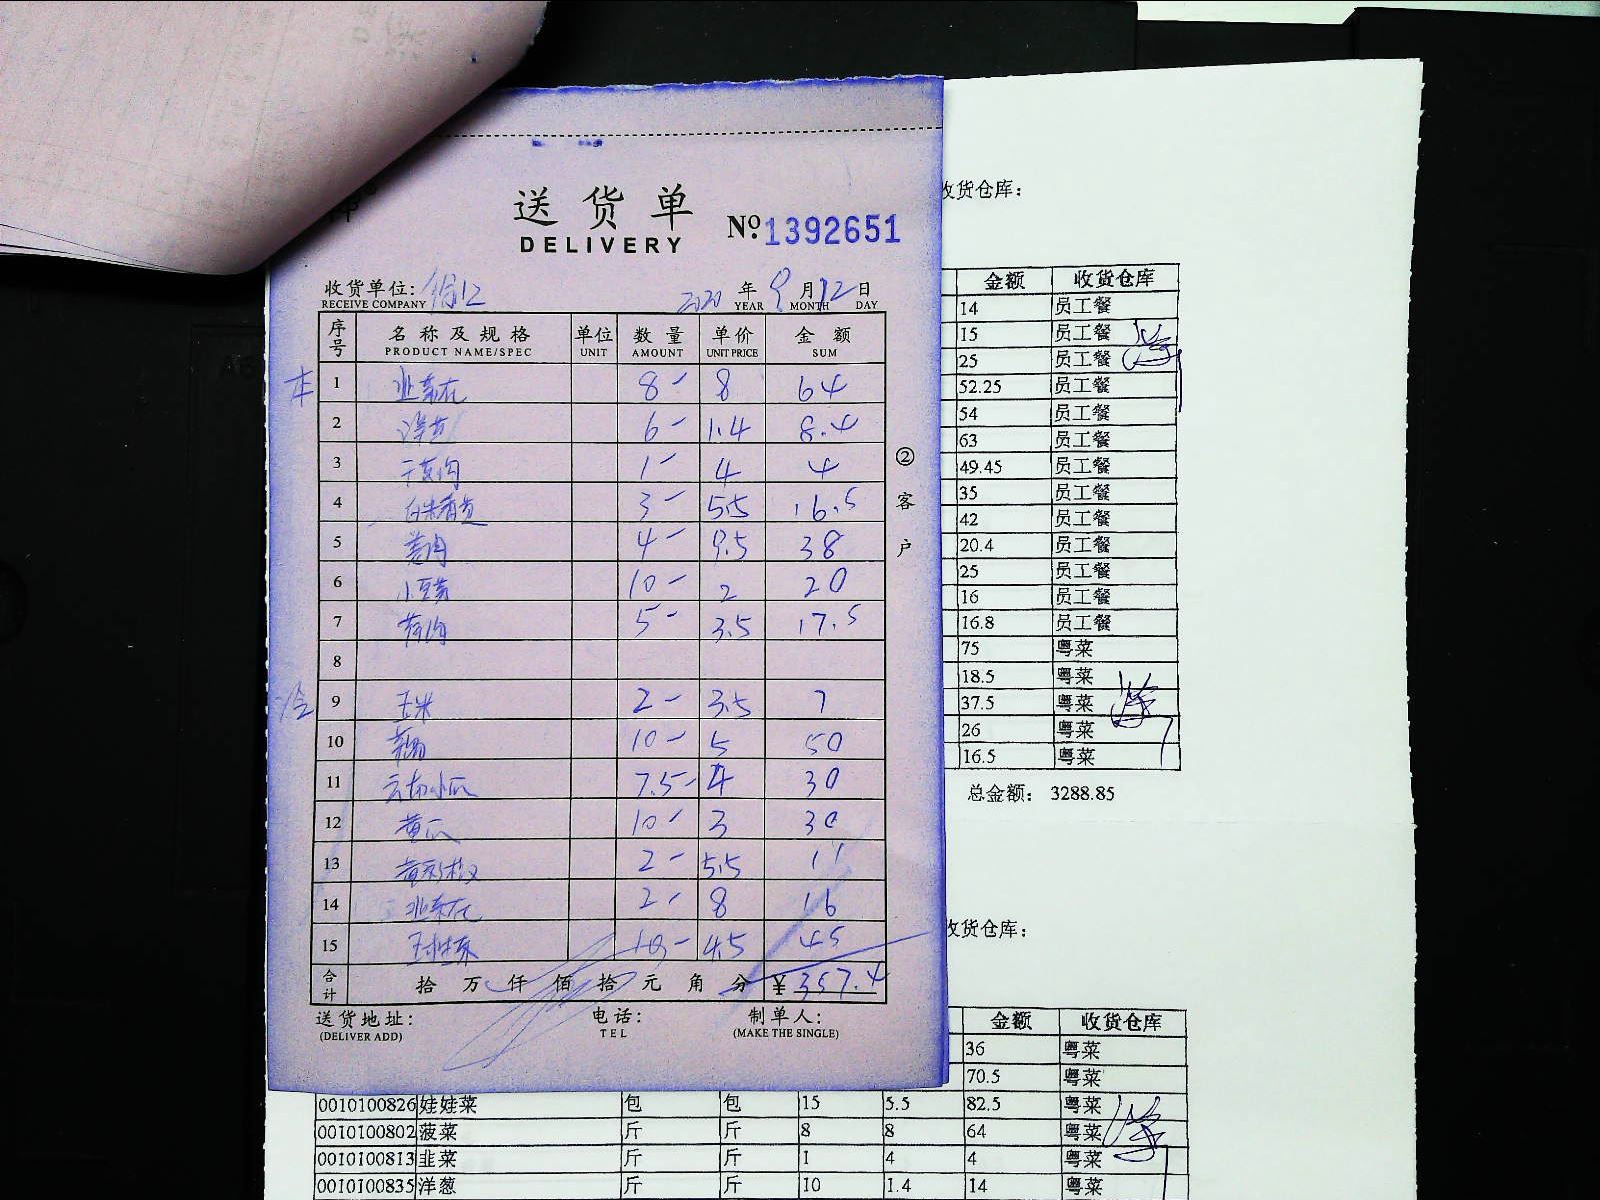 送货单
DELIVERY
№ 1392651
收货单位:
RECEIVE COMPANY
2020 年 9 月 12 日
YEAR MONTH DAY
序号 名称及规格 单位 数量 单价 金额
PRODUCT NAME/SPEC UNIT AMOUNT UNIT PRICE SUM
1 8 8 64
2 6 1.4 8.4
3 1 4 4
4 3 5.5 16.5
5 4 9.5 38
6 小豆芽 10 2 20
7 5 3.5 17.5
8
9 玉米 2 3.5 7
10 10 5 50
11 7.5 4 30
12 黄瓜 10 3 30
13 2 5.5 11
14 2 8 16
15 10 4.5 45
合计 拾 万 仟 佰 拾 元 角 分 ¥357.4
送货地址: 电话: 制单人:
(DELIVER ADD) TEL (MAKE THE SINGLE)
②客户
收货仓库:
金额 收货仓库
14 员工餐
15 员工餐
25 员工餐
52.25 员工餐
54 员工餐
63 员工餐
49.45 员工餐
35 员工餐
42 员工餐
20.4 员工餐
25 员工餐
16 员工餐
16.8 员工餐
75 粤菜
18.5 粤菜
37.5 粤菜
26 粤菜
16.5 粤菜
总金额: 3288.85
收货仓库:
金额 收货仓库
36 粤菜
70.5 粤菜
0010100826 娃娃菜 包 包 15 5.5 82.5 粤菜
0010100802 菠菜 斤 斤 8 8 64 粤菜
0010100813 韭菜 斤 斤 1 4 4 粤菜
0010100835 洋葱 斤 斤 10 1.4 14 粤菜